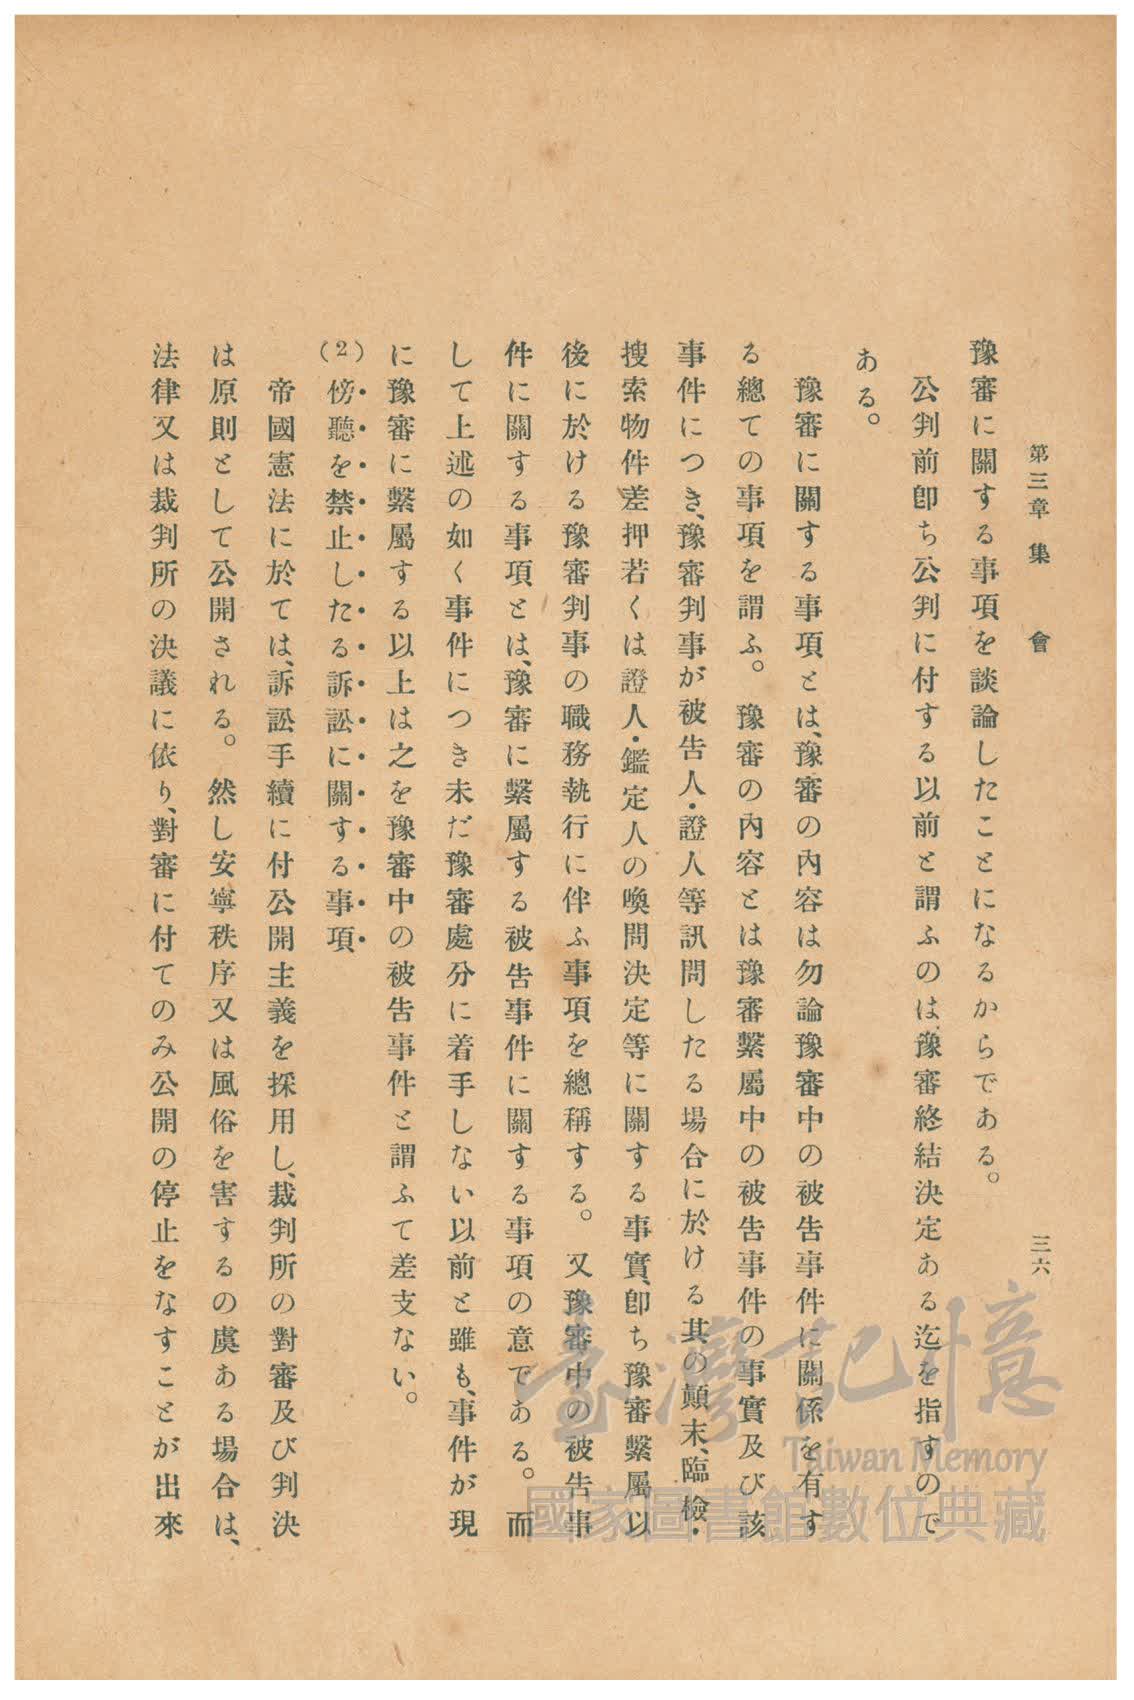 第三章 集 會 三六
豫審に關する事項を談論したことになるからである。
公判前卽ち公判に付する以前と謂ふのは豫審終結決定ある迄を指すので
ある。
豫審に關する事項とは、豫審の內容は勿論豫審中の被吿事件に關係を有す
る總ての事項を謂ふ。豫審の內容とは豫審繫屬中の被吿事件の事實及び該
事件につき、豫審判事が被吿人・證人等訊問したる場合に於ける其の顚末、臨檢・
搜索物件差押若くは證人・鑑定人の喚問決定等に關する事實、卽ち豫審繫屬以
後に於ける豫審判事の職務執行に伴ふ事項を總稱する。又豫審中の被吿事
件に關する事項とは、豫審に繫屬する被吿事件に關する事項の意である。而
して上述の如く事件につき未だ豫審處分に着手しない以前と雖も、事件が現
に豫審に繫屬する以上は之を豫審中の被吿事件と謂ふて差支ない。
(2) 傍聽を禁止したる訴訟に關する事項
帝國憲法に於ては、訴訟手續に付公開主義を採用し、裁判所の對審及び判決
は原則として公開される。然し安寧秩序又は風俗を害するの虞ある場合は、
法律又は裁判所の決議に依り、對審に付てのみ公開の停止をなすことが出來
臺灣記憶
Taiwan Memory
國家圖書館數位典藏